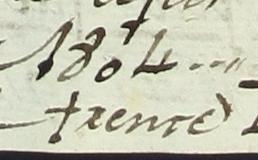 1804....
trente